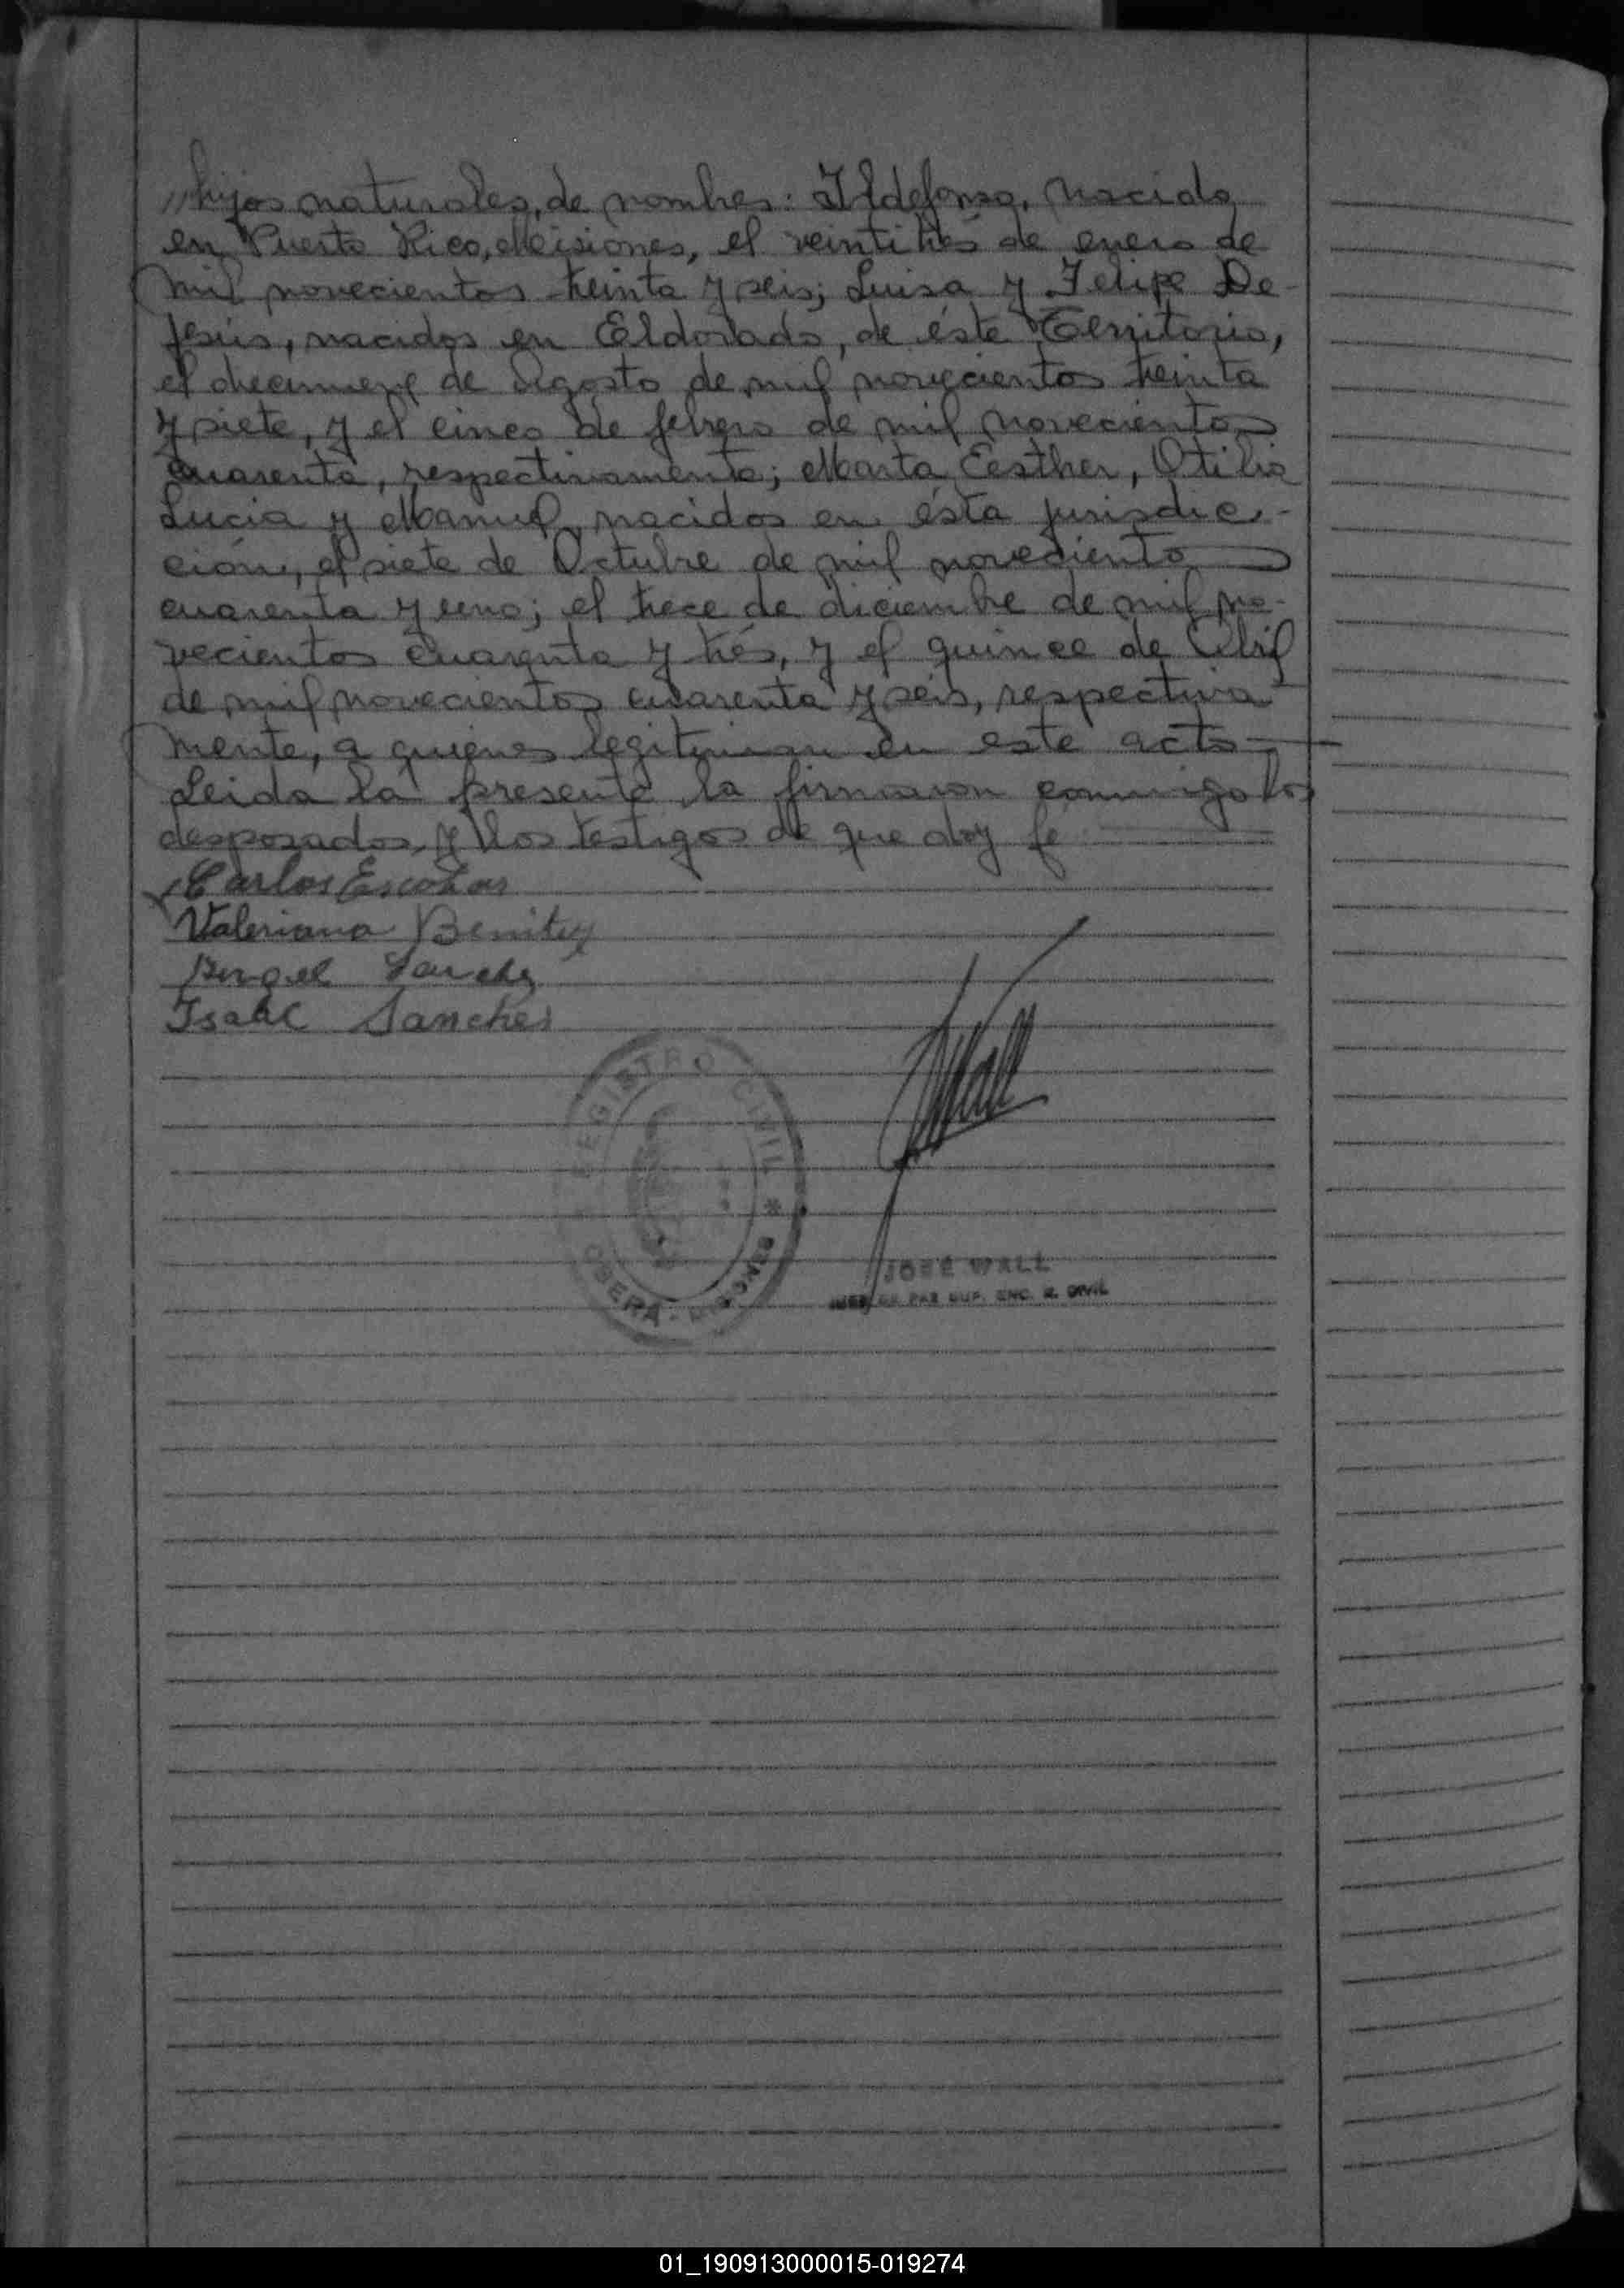 hijos naturales, de nombres: Ildefonso, nacido
en Puerto Rico, Misiones, el veintitrés de enero de
mil novecientos treinta y seis; Luisa y Felipe De
Jesús, nacidos en Eldorado, de éste Territorio,
el diecinueve de Agosto de mil novecientos treinta
y siete, y el cinco de febrero de mil novecientos
cuarenta, respectivamente; Marta Eesther, Otilia
Lucia y Manuel, nacidos en ésta jurisdic-
ción, el siete de Octubre de mil novecientos
cuarenta y uno; el trece de diciembre de mil no-
vecientos cuarenta y trés, y el quince de Abril
de mil novecientos cuarenta y seis, respectiva
mente, a quienes legitiman en este acto-
Leida la presente la firmaron conmigo los
desposados, y los testigos de que doy fe
Carlos Escobar
Valeriana Benitez
Angel Sanchez
Isaac Sanches
REGISTRO CIVIL
OBERÁ - MISIONES
JOSÉ WALL
JUEZ DE PAZ SUP. ENC. R. CIVIL
01_190913000015-019274